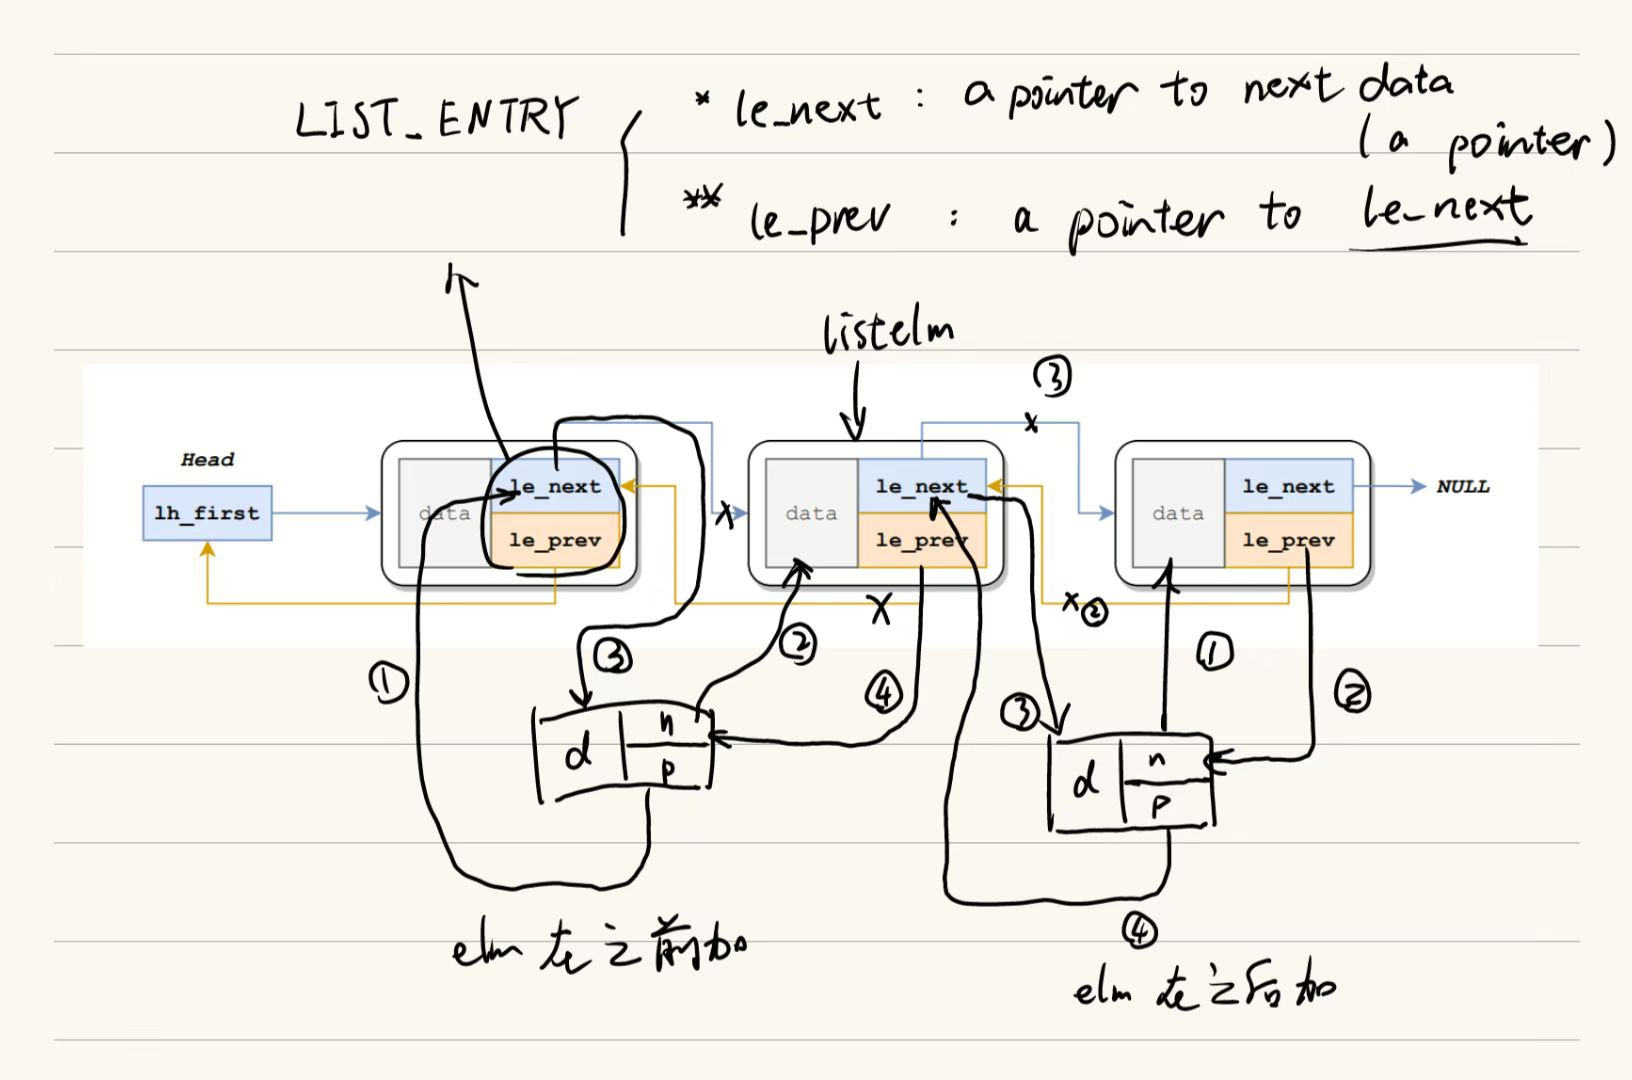 LIST_ENTRY
* le_next : a pointer to next data
(a pointer)
** le_prev : a pointer to le_next
listelm
③
Head
lh_first
data
le_next
le_prev
x
data
le_next
le_prev
x
x
data
le_next
le_prev
NULL
x ②
①
③
②
④
③
①
②
d
n
p
d
n
p
④
elm 在之前加
elm 在之后加